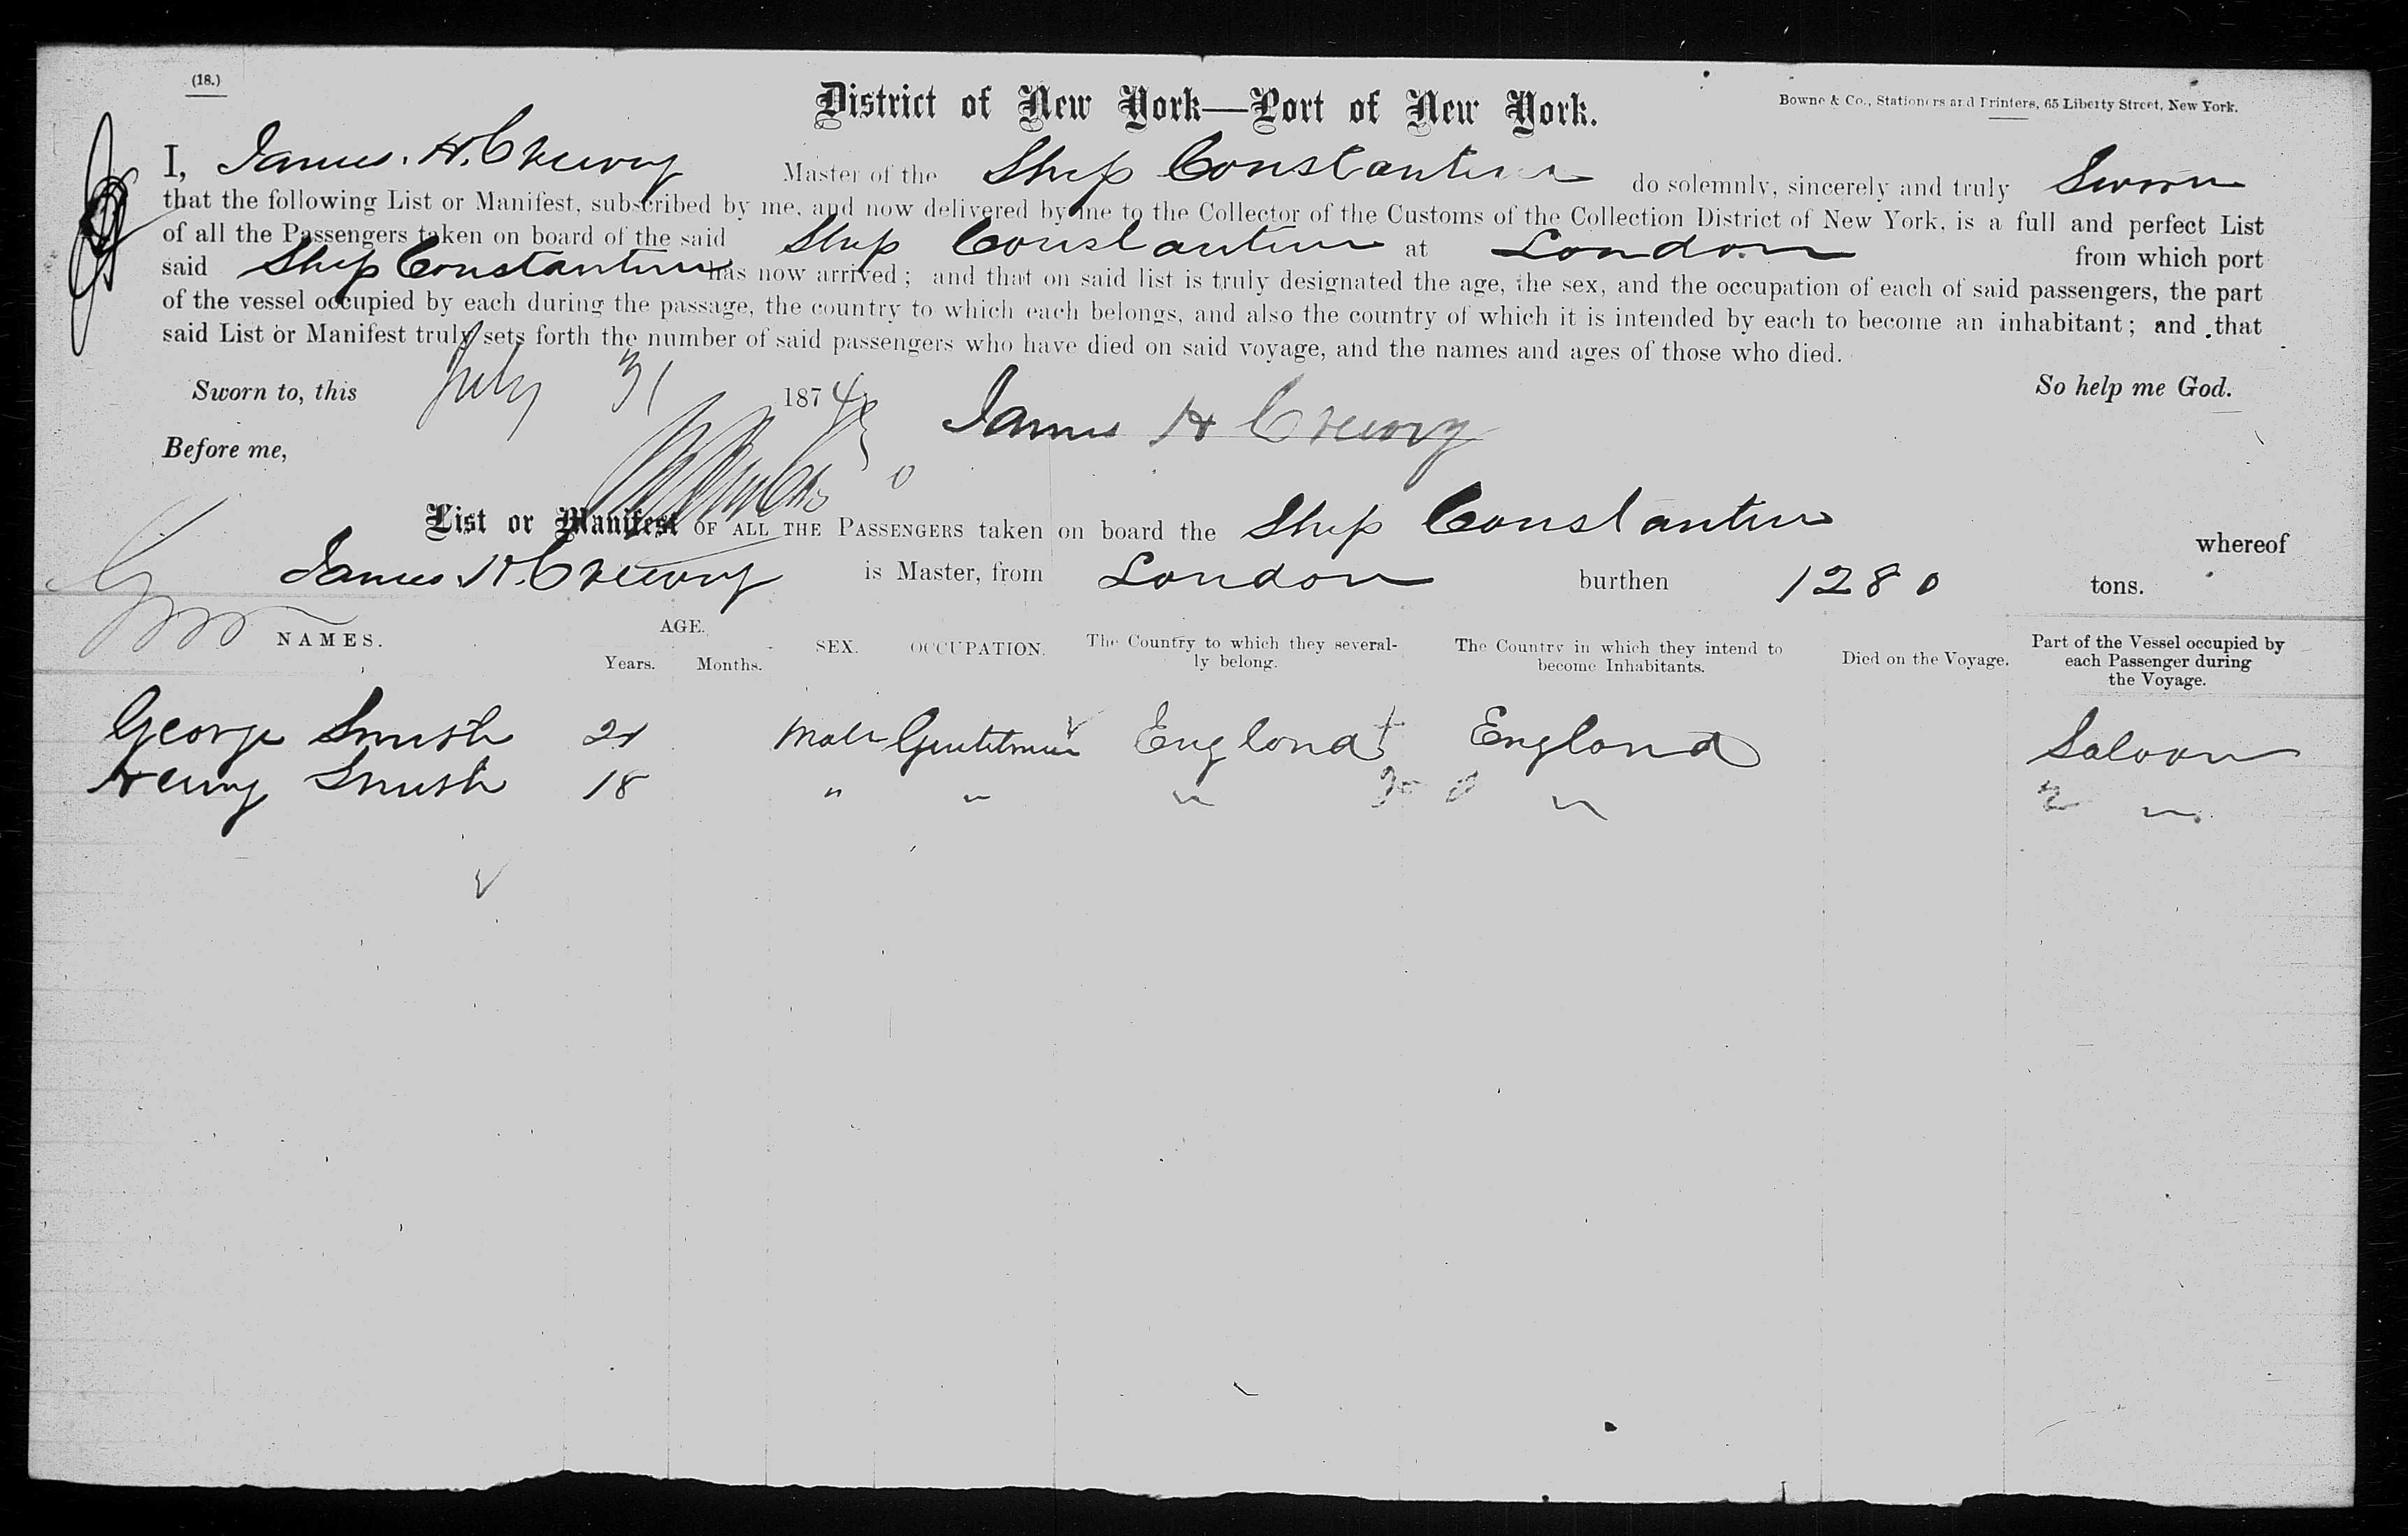 (18.)
District of New York—Port of New York.
Bowne & Co., Stationers and Printers, 65 Liberty Street, New York.
I, James. H. Creevey Master of the Ship Constantine do solemnly, sincerely and truly Sworn
that the following List or Manifest, subscribed by me, and now delivered by me to the Collector of the Customs of the Collection District of New York, is a full and perfect List
of all the Passengers taken on board of the said Ship Constantine at London from which port
said Ship Constantine has now arrived; and that on said list is truly designated the age, the sex, and the occupation of each of said passengers, the part
of the vessel occupied by each during the passage, the country to which each belongs, and also the country of which it is intended by each to become an inhabitant; and that
said List or Manifest truly sets forth the number of said passengers who have died on said voyage, and the names and ages of those who died.
Sworn to, this July 31 1874 So help me God.
James H Creevey
Before me,
List or Manifest OF ALL THE PASSENGERS taken on board the Ship Constantine whereof
James H. Creevey is Master, from London burthen 1280 tons.
NAMES. AGE. Years. Months. SEX. OCCUPATION. The Country to which they severally belong. The Country in which they intend to become Inhabitants. Died on the Voyage. Part of the Vessel occupied by each Passenger during the Voyage.
George Smith 21 Male Gentlemen England England Saloon
Henry Smith 18 " " " " "